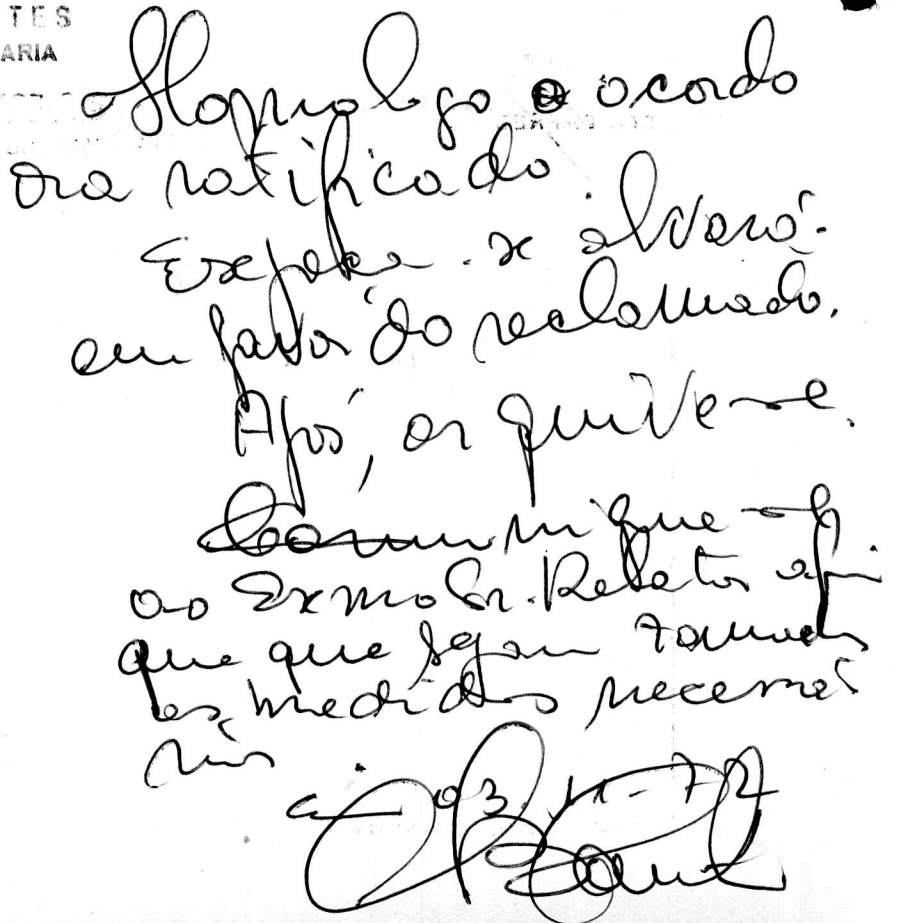 TES
ARIA
Homologo o acordo
ora ratificado
Expeça-se alvará.
em favor do reclamado.
Após, arquive-se.
Comunique-se
ao Exmo Sr. Relator afim
que que sejam tomadas
as medidas necessá
rias
03.11-72